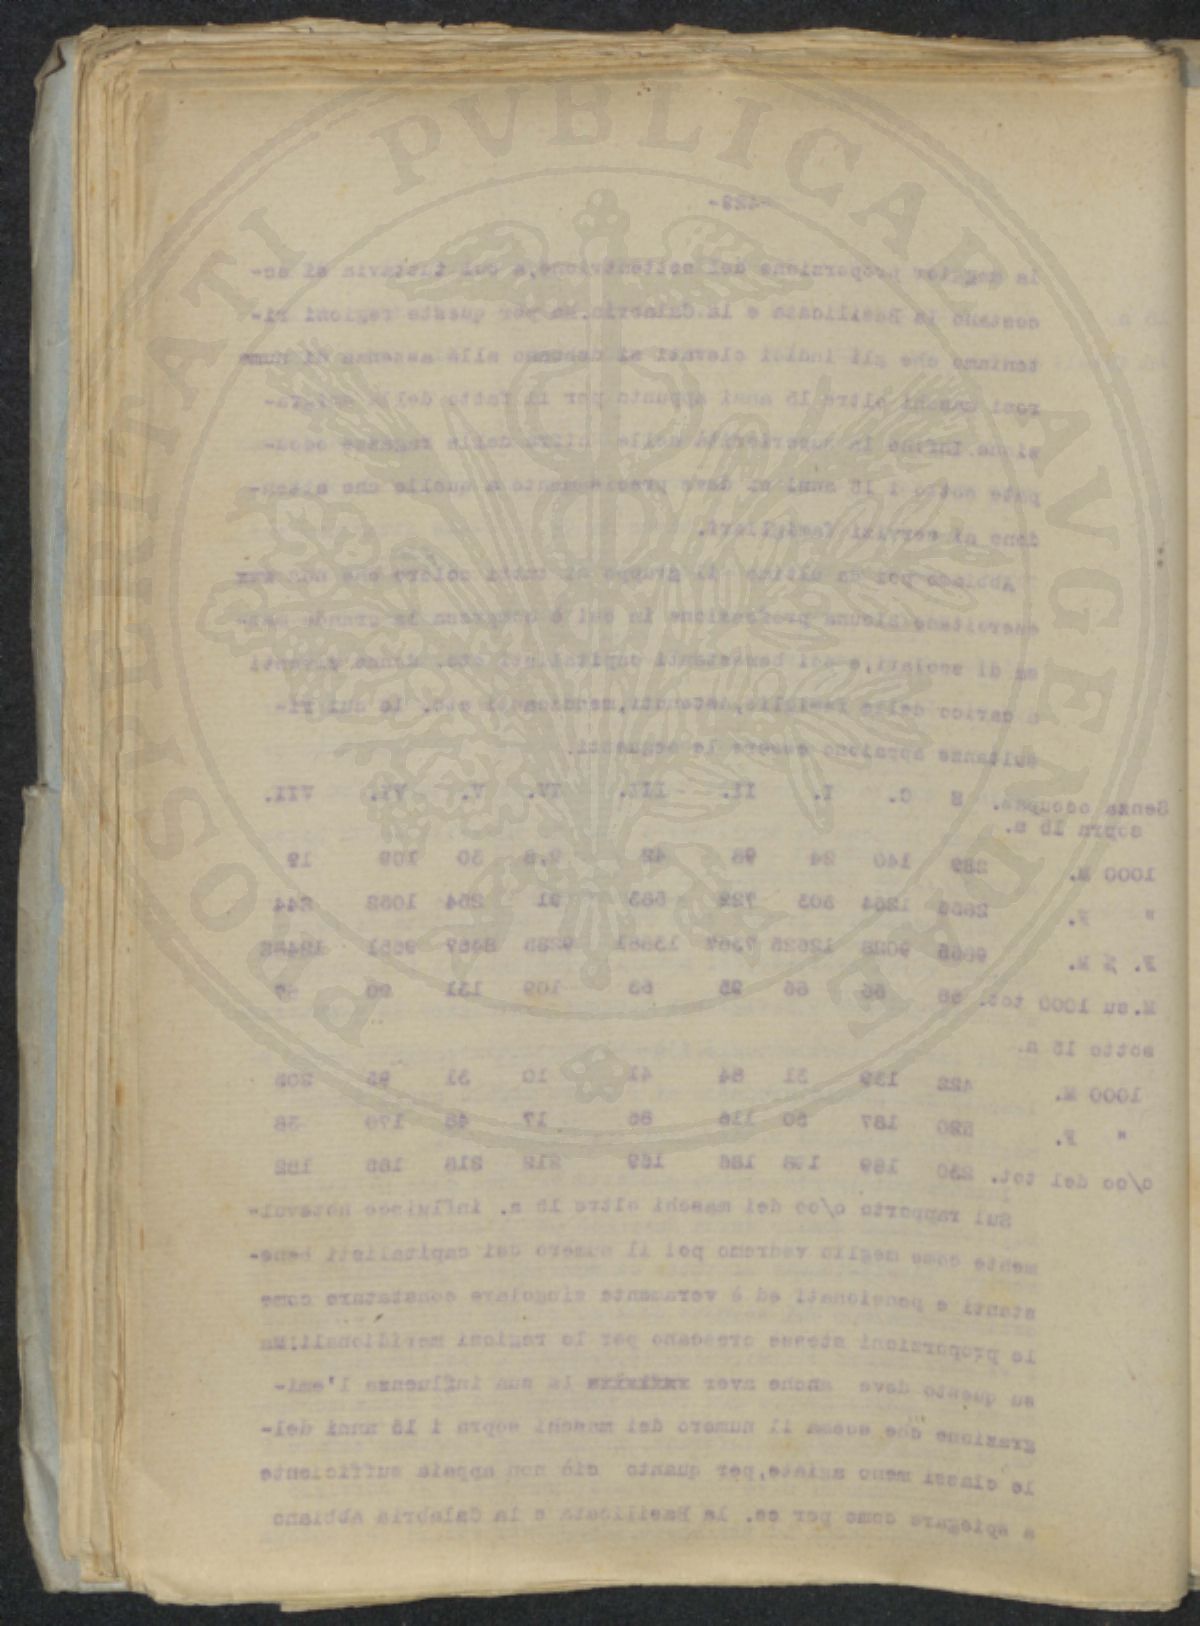 -429-
la maggior proporzione del settentrione, a cui tuttavia si ac-
costano la Basilicata e la Calabria. Ma per queste regioni ri-
teniamo che gli indici elevati si debbano alla assenza di nume
rosi maschi oltre 15 anni appunto per il fatto della
zione. Infine la superiorità della cifra delle ragazze occu-
pate sotto i 15 anni si deve precisamente a quelle che atten-
dono ai servizi famigliari.
Abbiamo poi da ultimo il gruppo di tutti coloro che non
esercitano alcuna professione in cui è compresa la grande mas-
sa di scolari, e dei benestanti capitalisti etc. donne viventi
a carico della famiglia, detenuti, mendicanti etc. le cui ri-
sultanze appaiono essere le seguenti.
Senza occupaz. R C. I. II. III. IV. V. VI. VII.
sopra 15 a.
1000 M. 289 140 24 98 42 50 109 19
" F. 2656 1264 303 722 583 91 254 1052 244
F. % M. 9028 12625 7367 13881 9285 8467 9651 12482
M. su 1000 tot. 58 66 66 95 53 109 131 90 57
sotto 15 a.
1000 M. 422 139 31 84 41 10 31 95 205
" F. 520 187 50 116 86 17 48 170 38
o/oo del tot. 230 189 198 186 169 212 218 185 182
Sul rapporto o/oo dei maschi oltre 15 a. influisce notevol-
mente come meglio vedremo poi il numero dei capitalisti bene-
stanti e pensionati ed è veramente singolare constatare come
le proporzioni stesse crescano per le regioni meridionali: ma
su questo deve anche aver la sua influenza l'emi-
grazione che scema il numero dei maschi sopra i 15 anni del-
le classi meno agiate, per quanto ciò non appaia sufficiente
a spiegare come per es. la Basilicata e la Calabria abbiano
PROSPERITATI PVBLICAE AVGENDAE